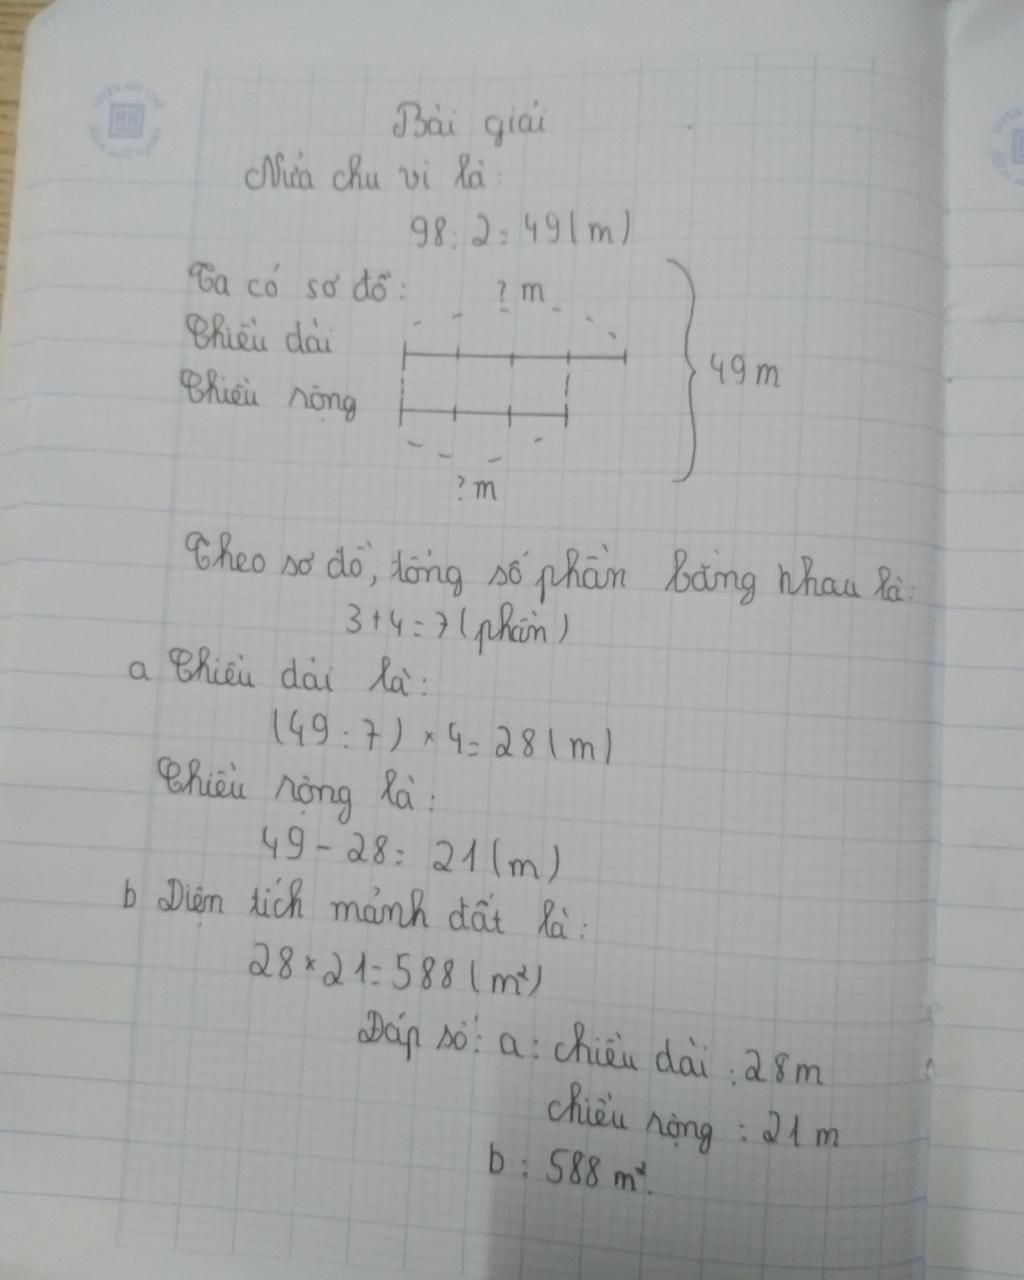 Bài giải
Nửa chu vi là:
98 : 2 = 49 (m)
Ta có sơ đồ:
? m
Chiều dài
Chiều rộng
49 m
? m
Theo sơ đồ, tổng số phần bằng nhau là:
3 + 4 = 7 (phần)
a Chiều dài là:
(49 : 7) × 4 = 28 (m)
Chiều rộng là:
49 - 28 = 21 (m)
b Diện tích mảnh đất là:
28 × 21 = 588 (m²)
Đáp số: a: chiều dài : 28 m
chiều rộng : 21 m
b : 588 m².